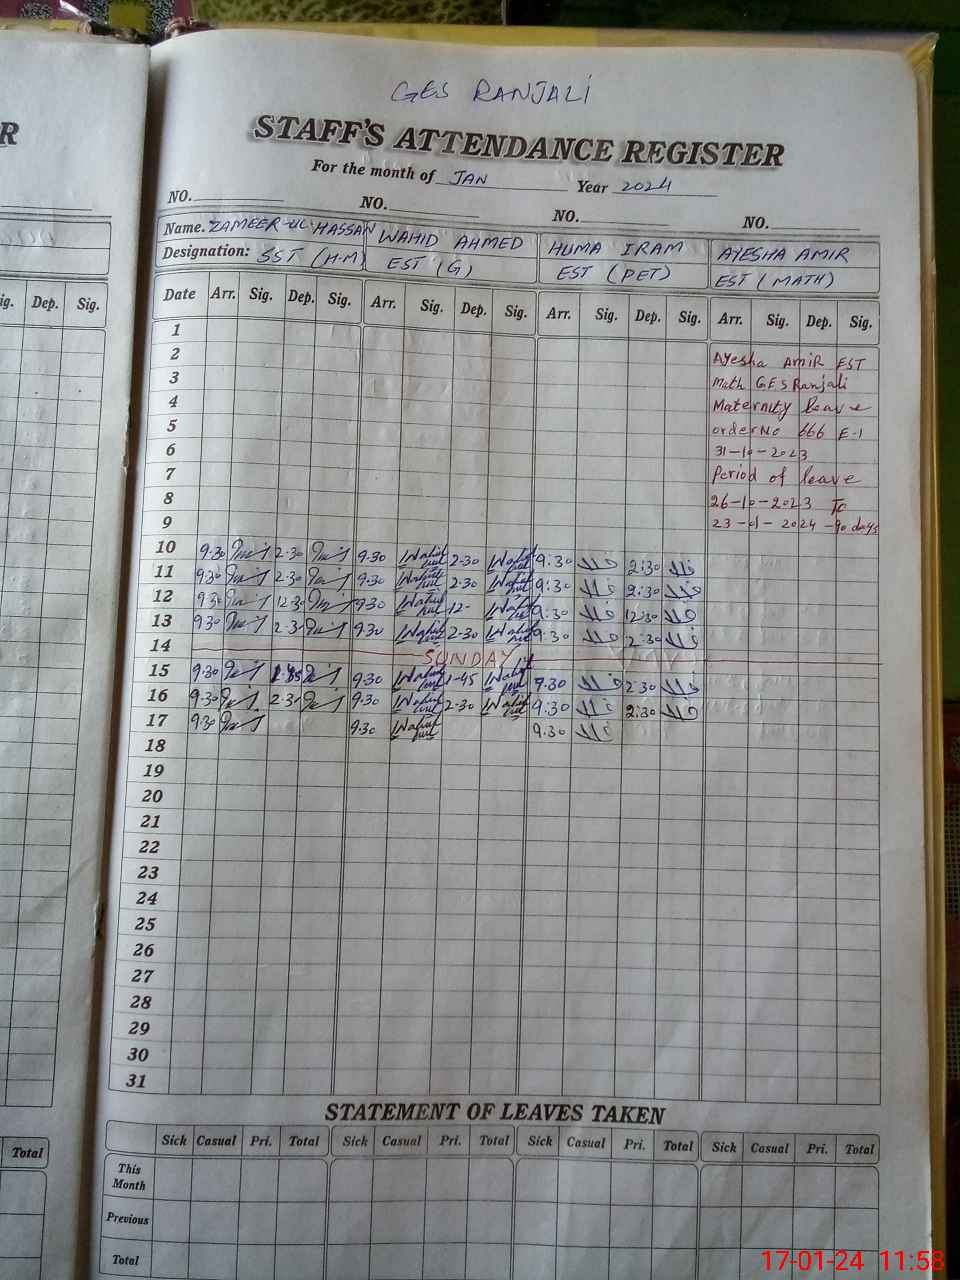 GES RANJALI
R
STAFF'S ATTENDANCE REGISTER
For the month of JAN Year 2024
NO. NO. NO. NO.
Name. ZAMEER-UL-HASSAN WAHID AHMED HUMA IRAM AYESHA AMIR
Designation: SST (H.M) EST (G) EST (PET) EST (MATH)
ig. Dep. Sig.
Date Arr. Sig. Dep. Sig. Arr. Sig. Dep. Sig. Arr. Sig. Dep. Sig. Arr. Sig. Dep. Sig.
1
2 Ayesha AmiR EST
3 Math GES Ranjali
4 Maternity leave
5 order No 666 E-1
6 31-10-2023
7 Period of leave
8 26-10-2023 To
9 23-01-2024 -90 days
10 9-30 2-30 9-30 Wahid 2-30 Wahid 9:30 2:30
11 9-30 2-30 9-30 Wahid 2-30 Wahid 9:30 2:30
12 9-30 12-30 9-30 Wahid 12- Wahid 9:30 12:30
13 9-30 2-30 9-30 Wahid 2-30 Wahid 9:30 2:30
14 SUNDAY
15 9-30 9-30 Wahid 1-45 Wahid 9:30 2:30
16 9-30 2-30 9-30 Wahid 2-30 Wahid 9:30 2:30
17 9-30 9-30 Wahid 9:30
18
19
20
21
22
23
24
25
26
27
28
29
30
31
STATEMENT OF LEAVES TAKEN
Total
Sick Casual Pri. Total Sick Casual Pri. Total Sick Casual Pri. Total Sick Casual Pri. Total
This
Month
Previous
Total
17-01-24 11:58